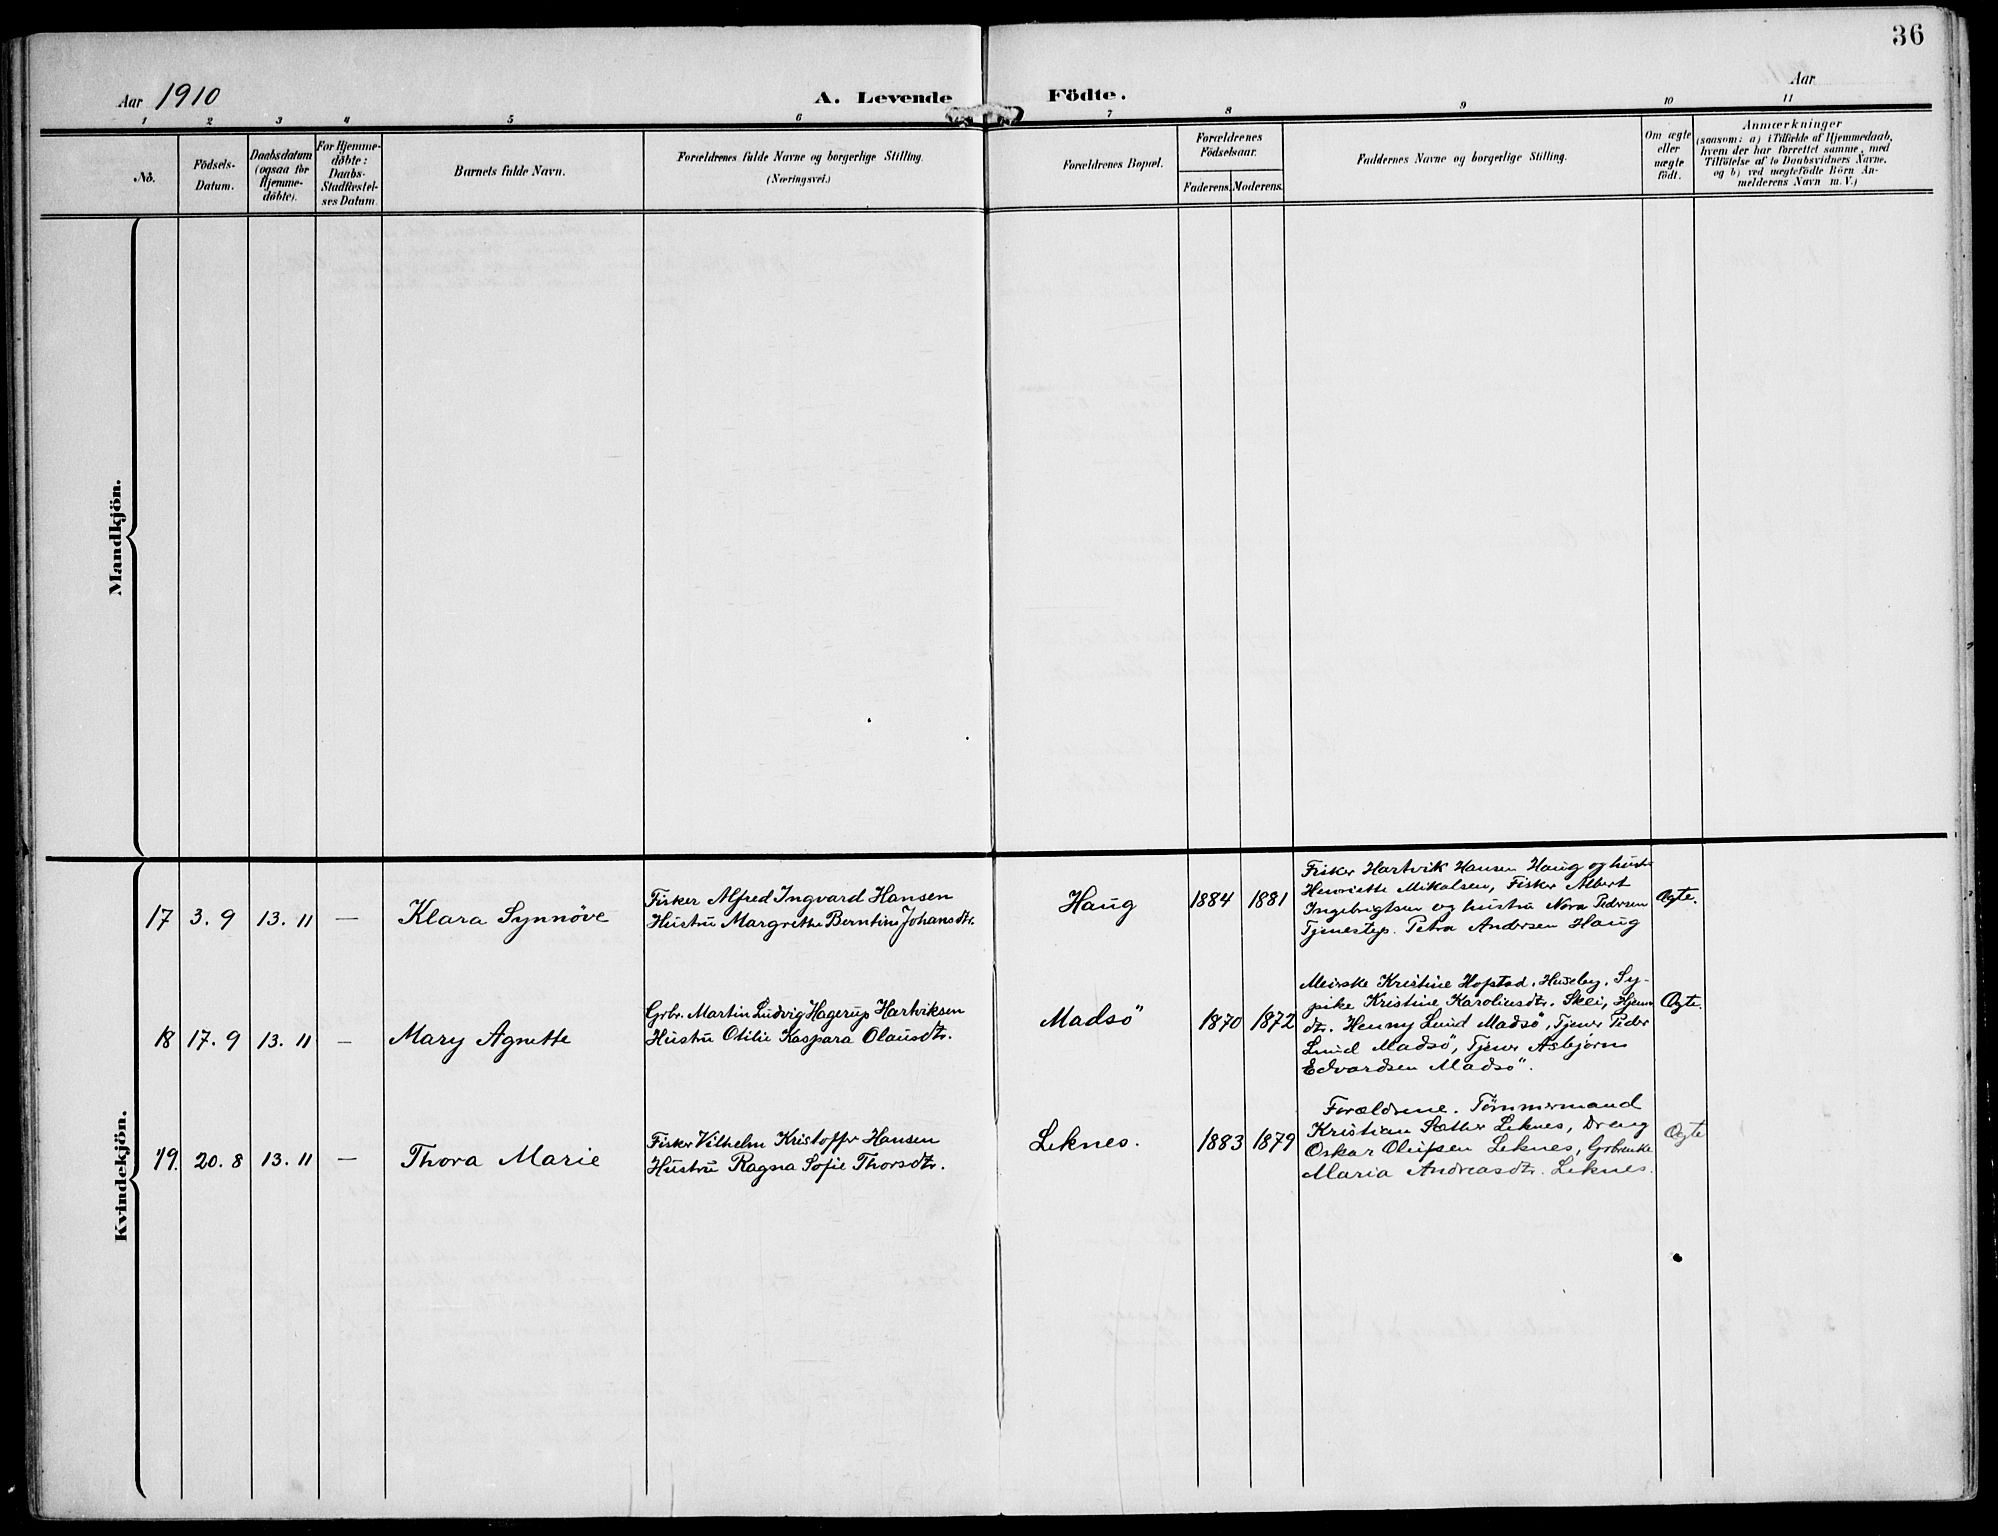 36
Aar 1910
A. Levende Födte.
Aar
1 2 3 4 5 6 7 8 9 10 11
No.
Födsels-
Datum.
Daabsdatum
(ogsaa for
Hjemme-
döbte).
For Hjemme-
döbte:
Daabs-
Stadfæstel-
ses Datum.
Barnets fulde Navn.
Forældrenes fulde Navne og borgerlige Stilling.
(Næringsvei.)
Forældrenes Bopæl.
Forældrenes
Födselsaar.
Faderens. Moderens.
Faddernes Navne og borgerlige Stilling.
Om ægte
eller
uægte
födt.
Anmærkninger
(saasom: a) i Tilfælde af Hjemmedaab,
hvem der har forrettet samme, med
Tilföielse af to Daabsvidners Navne,
og b) ved uægtefödte Börn An-
melderens Navn m. V.)
Mandkjön.
Kvindekjön.
17 3. 9 13. 11 — Klara Synnöve
Fisker Alfred Ingvard Hansen
Hustru Margrethe Berntine Johansdtr.
Haug 1884 1881
Fisker Hartvik Hansen Haug og hustr
Henriette Mikalsen, Fisker Albert
Ingebrigtsen og hustru Nora Pedersen
Tjenestep. Petra Andersen Haug
Ægte.
18 17. 9 13. 11 — Mary Agnette
Grbr. Martin Ludvig Hagerup Hartviksen
Hustru Otilie Kaspara Olausdtr.
Madsö 1870 1872
Meierske Kristine Hopstad, Huseby, Sy-
pike Kristine Karoliusdtr. Skei, Hjem
dtr. Henny Lund Madsö, Tjener Peder
Lund Madsö, Tjener Asbjørn
Edvardsen Madsö.
Ægte.
19. 20. 8 13. 11 — Thora Marie
Fisker Vilhelm Kristoffer Hansen
Hustru Ragna Sofie Thorsdtr.
Leknes. 1883 1879
Forældrene. Tömmermand
Kristian Sæther Leknes, Dreng
Oskar Olufsen Leknes, Grbrenke
Maria Andreasdtr. Leknes.
Ægte